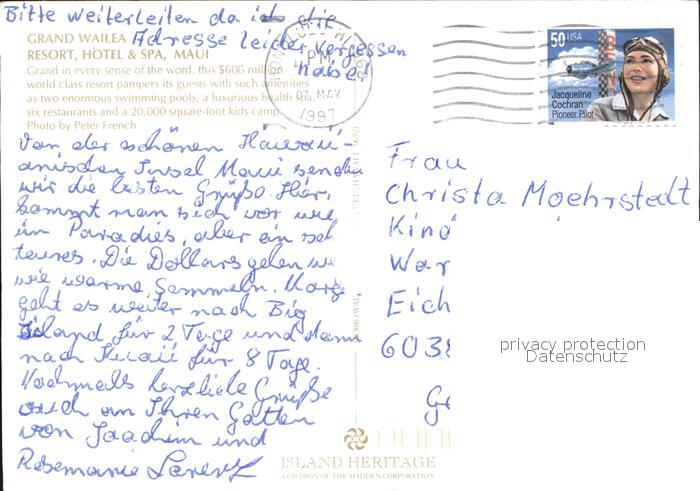 Bitte weiterleiten da ich die
Adresse leider vergessen
habe!
GRAND WAILEA
RESORT, HOTEL & SPA, MAUI
Grand in every sense of the word, this $600 million
world class resort pampers its guests with such amenities
as two enormous swimming pools, a luxurious health spa,
six restaurants and a 20,000 square-foot kids camp.
Photo by Peter French
HONOLULU HI
PM
07 MAY
1997
50 USA
Jacqueline
Cochran
Pioneer Pilot
Von der schönen Hawaii-
anischen Insel Maui senden
wir die besten Grüße. Hier
kommt man sich vor wie
im Paradies, aber ein seh
teures. Die Dollars gehen we
wie warme Semmeln. Morg.
geht es weiter nach Big
Island für 2 Tage und dann
nach Kauai für 8 Tage.
Nochmals herzliche Grüße
auch an Ihren Gatten
von Joachim und
Rosemarie Lorenz
Frau
Christa Moehrstedt
Kind
War
Eich
6038
Ge
privacy protection
Datenschutz
ISLAND HERITAGE
A DIVISION OF THE MADDEN CORPORATION